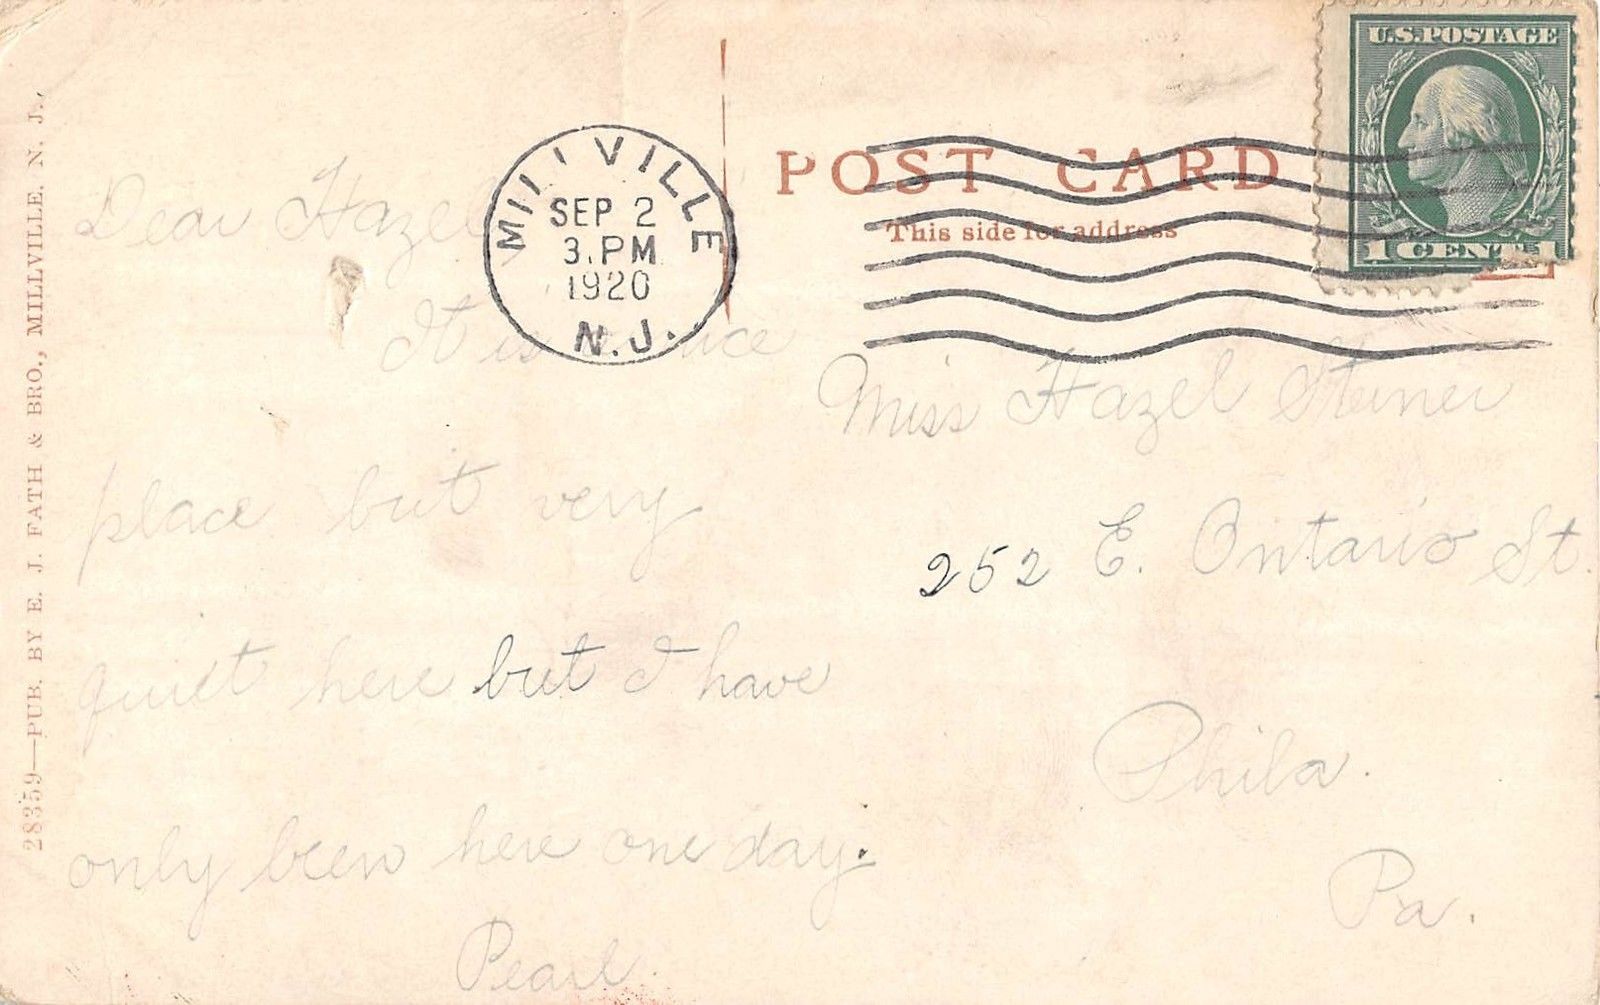 28359—PUB. BY E. J. FATH & BRO., MILLVILLE, N. J.
Dear Hazel
It is a nice
place but very
quiet here but I have
only been here one day.
Pearl.
MILLVILLE
SEP 2
3. PM
1920
N.J.
POST CARD
This side for address
U.S. POSTAGE
1 CENT 1
Miss Hazel Steiner
252 E. Ontario St.
Phila.
Pa.